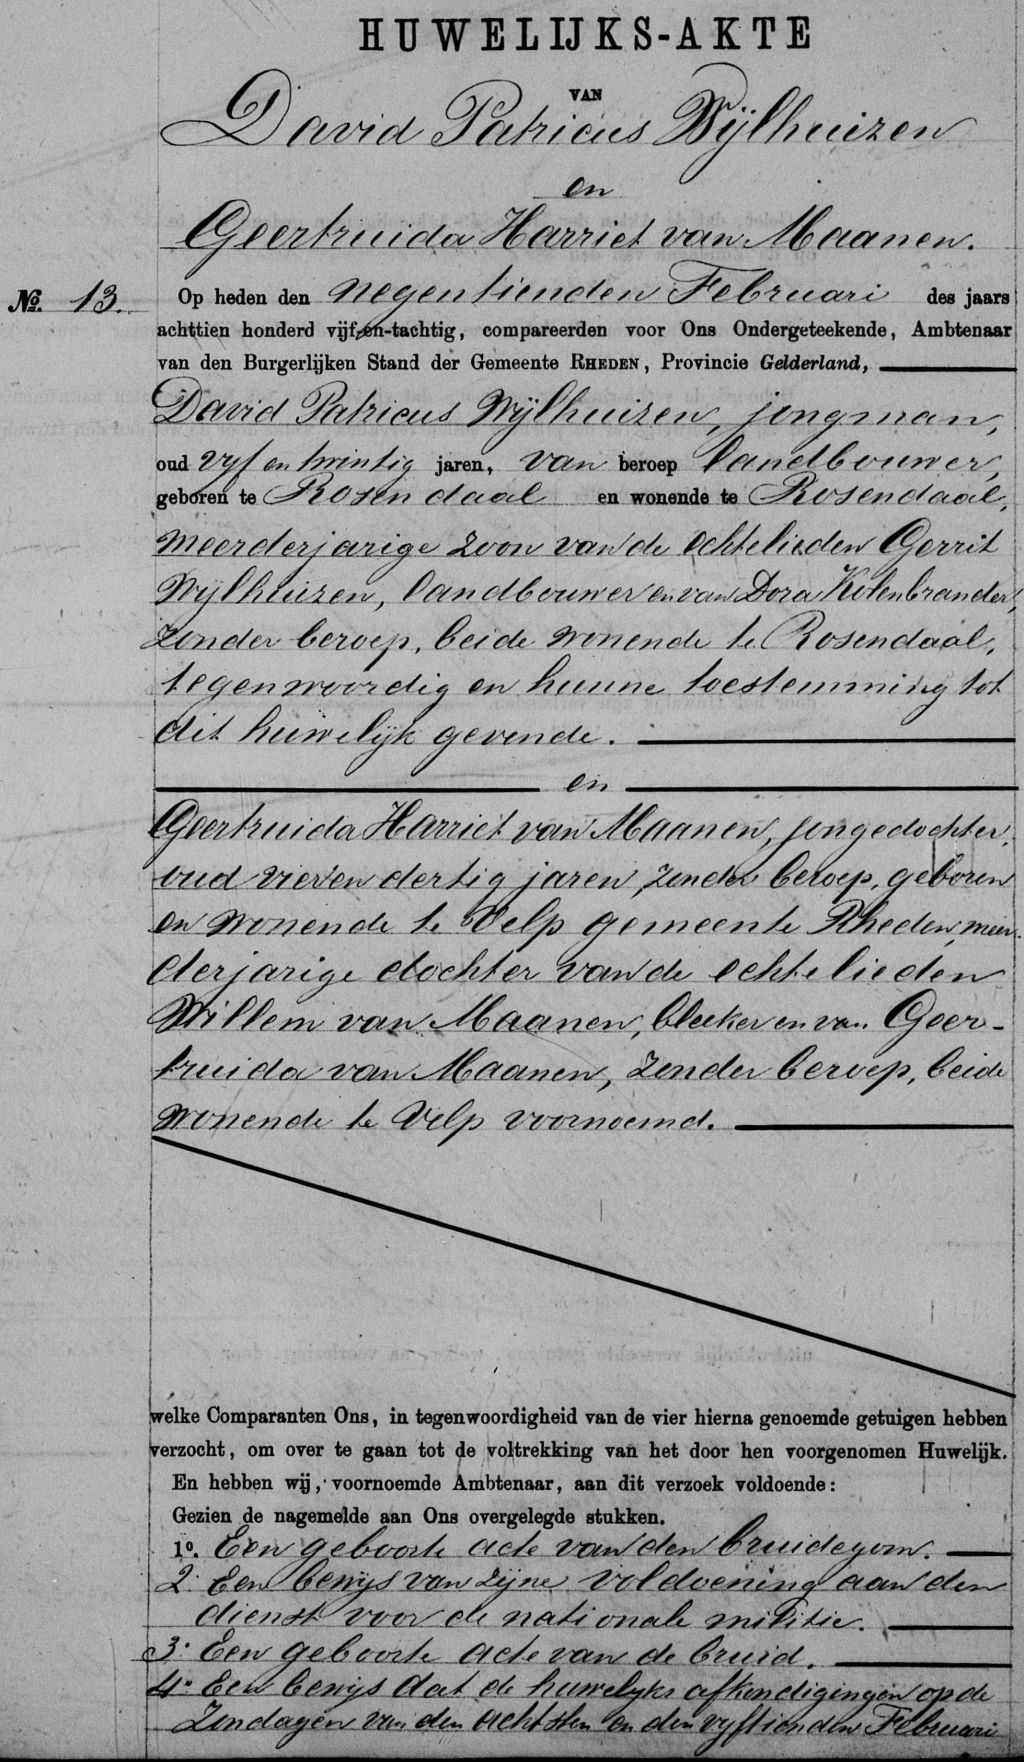 HUWELIJKS-AKTE
VAN
David Patricus Wijlhuizen
en
Geertruida Harriet van Maanen.
No. 13.
Op heden den negentienden Februari des jaars
achttien honderd vijf-en-tachtig, compareerden voor Ons Ondergeteekende, Ambtenaar
van den Burgerlijken Stand der Gemeente RHEDEN, Provincie Gelderland,
David Patricus Wijlhuizen, jongman,
oud vyf en twintig jaren, van beroep landbouwer,
geboren te Rosendaal en wonende te Rosendaal,
meerderjarige zoon van de echtelieden Gerrit
Wijlhuizen, landbouwer en van Dora Kolenbrander,
zonder beroep, beide wonende te Rosendaal,
tegenwoordig en hunne toestemming tot
dit huwelijk gevende.
en
Geertruida Harriet van Maanen, jongedochter,
oud vier en dertig jaren, zonder beroep, geboren
en wonende te Velp gemeente Rheden, meer-
derjarige dochter van de echtelieden
Willem van Maanen, bleeker en van Geer-
truida van Maanen, zonder beroep, beide
wonende te Velp voornoemd.
welke Comparanten Ons, in tegenwoordigheid van de vier hierna genoemde getuigen hebben
verzocht, om over te gaan tot de voltrekking van het door hen voorgenomen Huwelijk.
En hebben wij, voornoemde Ambtenaar, aan dit verzoek voldoende:
Gezien de nagemelde aan Ons overgelegde stukken.
1o. Een geboorte acte van den bruidegom.
2. Een bewijs van zijne voldoening aan den
dienst voor de nationale militie.
3. Een geboorte acte van de bruid.
4o Een bewijs dat de huwelyks afkondigingen op de
Zondagen van den achtsten en den vyftienden Februari